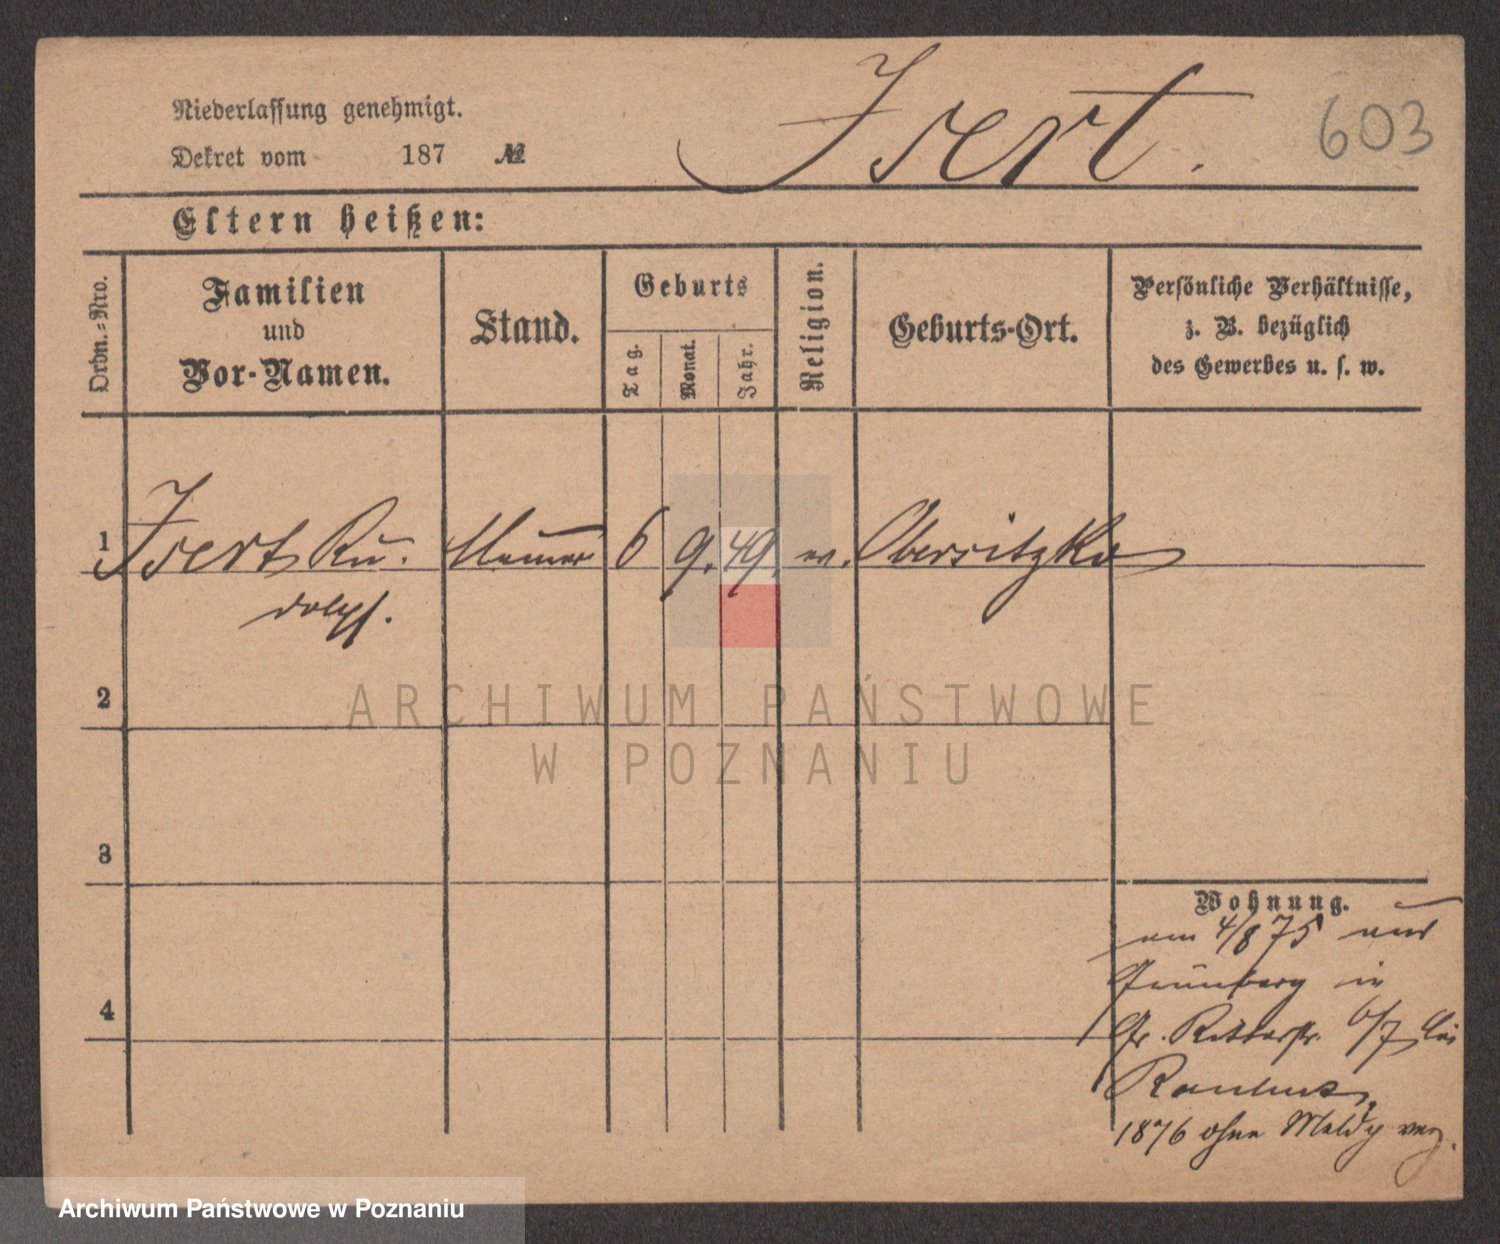 Niederlassung genehmigt.
Dekret vom 187 №
Isert.
603
Eltern heißen:
Ordn.-Nro.
Familien
und
Vor-Namen.
Stand.
Geburts
Tag.
Monat.
Jahr.
Religion.
Geburts-Ort.
Persönliche Verhältnisse,
z. B. bezüglich
des Gewerbes u. s. w.
1 Isert Ru- Maurer 6 9. 49. ev. Obersitzko
dolph.
2
ARCHIWUM PAŃSTWOWE
W POZNANIU
3
Wohnung.
am 4/8 75 aus
Grünberg in
4
Gr. Ritterstr. 6/7 bei
1876 ohne Meldg verz.
Archiwum Państwowe w Poznaniu